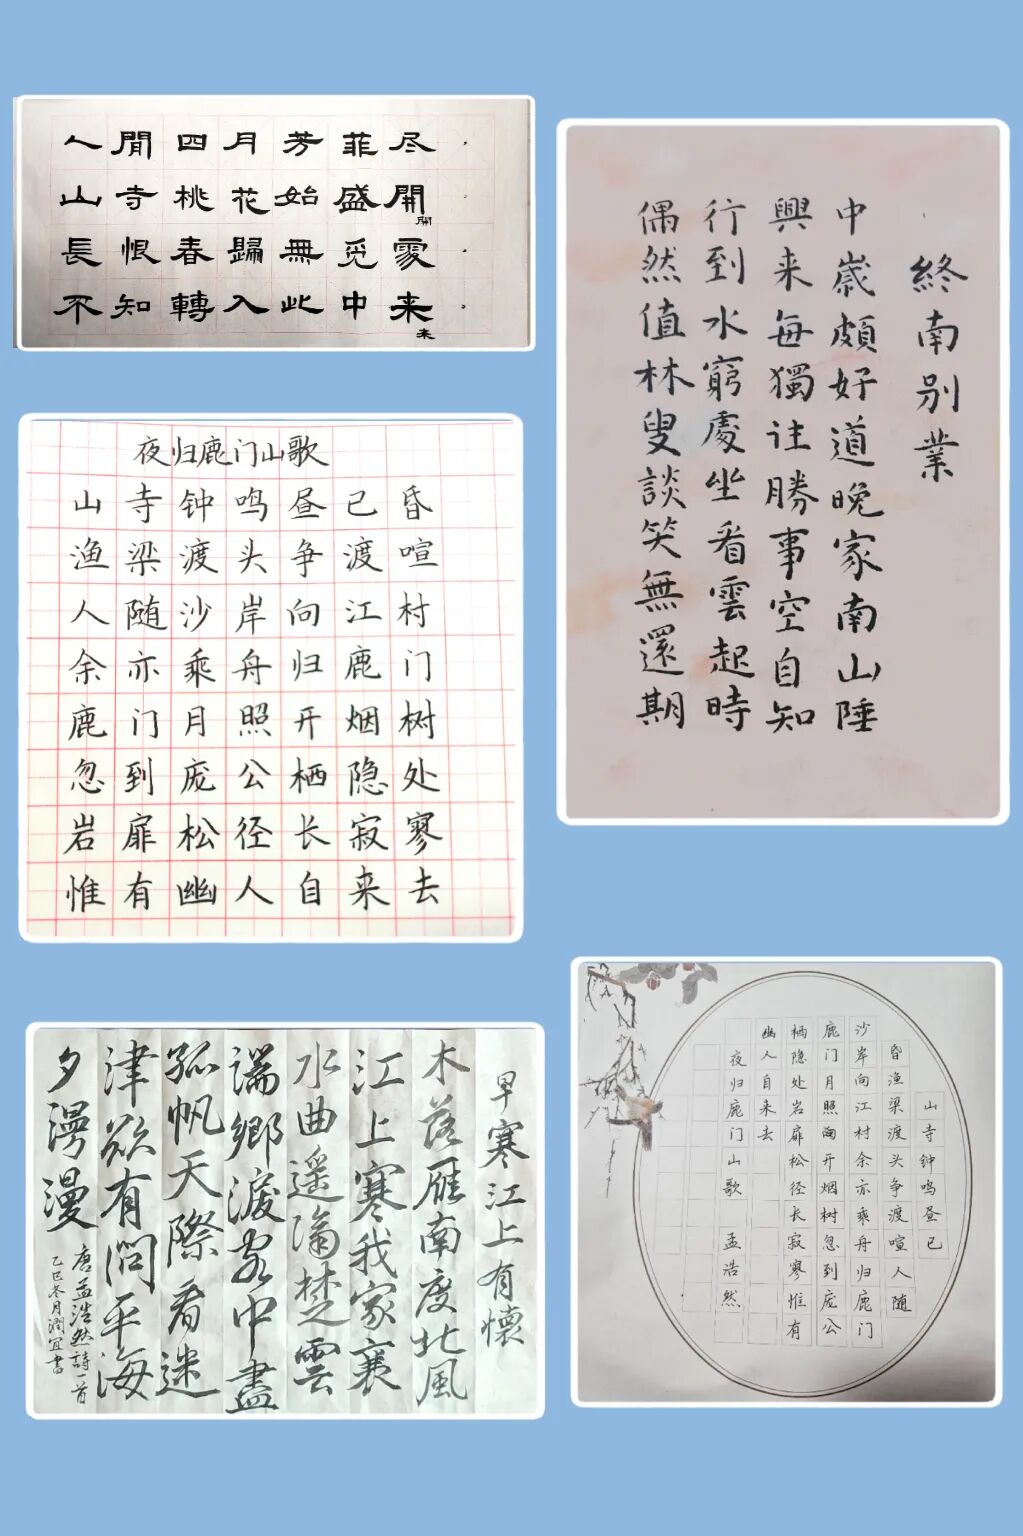 人間四月芳菲尽
山寺桃花始盛開
開
長恨春歸無覓處
不知轉入此中来
来
終南别業
中歲頗好道晚家南山陲
興来每獨往勝事空自知
行到水窮處坐看雲起時
偶然值林叟談笑無還期
夜归鹿门山歌
山寺钟鸣昼已昏
渔梁渡头争渡喧
人随沙岸向江村
余亦乘舟归鹿门
鹿门月照开烟树
忽到庞公栖隐处
岩扉松径长寂寥
惟有幽人自来去
早寒江上有懷
木落雁南度北風
江上寒我家襄
水曲遥隔楚雲
端鄉淚客中盡
孤帆天際看迷
津欲有問平海
夕漫漫
唐孟浩然詩一首
乙巳冬月潤宜書
山寺钟鸣昼已
昏渔梁渡头争渡喧人随
沙岸向江村余亦乘舟归鹿门
鹿门月照开烟树忽到庞公
栖隐处岩扉松径长寂寥惟有
幽人自来去
夜归鹿门山歌 孟浩然